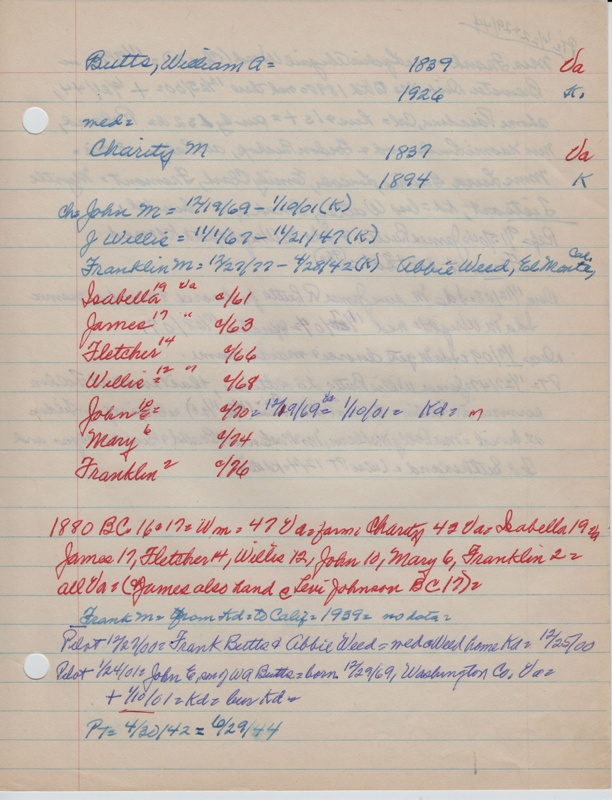 Butts, William A = 1839 Va
1926 K.
med=
Charity M 1837 Va
1894 K
ch= John M = 12/19/69 - 1/10/01 (K)
J Willie = 11/1/67 - 11/21/47 (K)
Franklin M = 12/27/77 - 4/28/42 (K) Abbie Weed, El Monte, Cal.
Isabella 19 Va c/61
James 17 " c/63
Fletcher 14 c/66
Willis = 12 " c/68
John E= 10 c/70 = 12/19/69 Va 1/10/01 = Kd = m
Mary 6 c/74
Franklin 2 c/76
1880 BC 16=17= Wm = 47 Va= farm; Charity 43 Va= Isabella 19 Va
James 17, Fletcher 14, Willis 12, John 10, Mary 6, Franklin 2 =
all Va= (James also hand c Levi Johnson BC 17)=
Frank M= from Kd= to Calif = 1939= no data=
Pilot 12/27/00= Frank Butts & Abbie Weed = med Weed home Kd= 12/25/00
Pilot 1/24/01= John E, son of WA Butts= born 12/29/69, Washington Co, Va=
+ 1/10/01 = Kd= bur Kd=
PT= 4/30/42 = 6/29/44